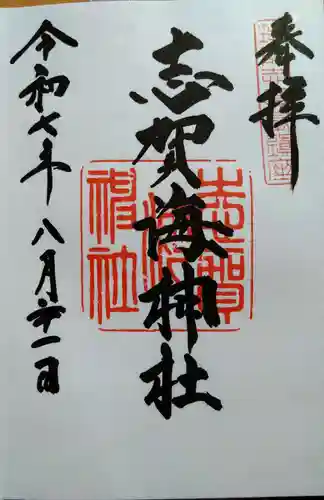 奉拝
志賀海神社
令和七年八月二十一日
志賀海神社